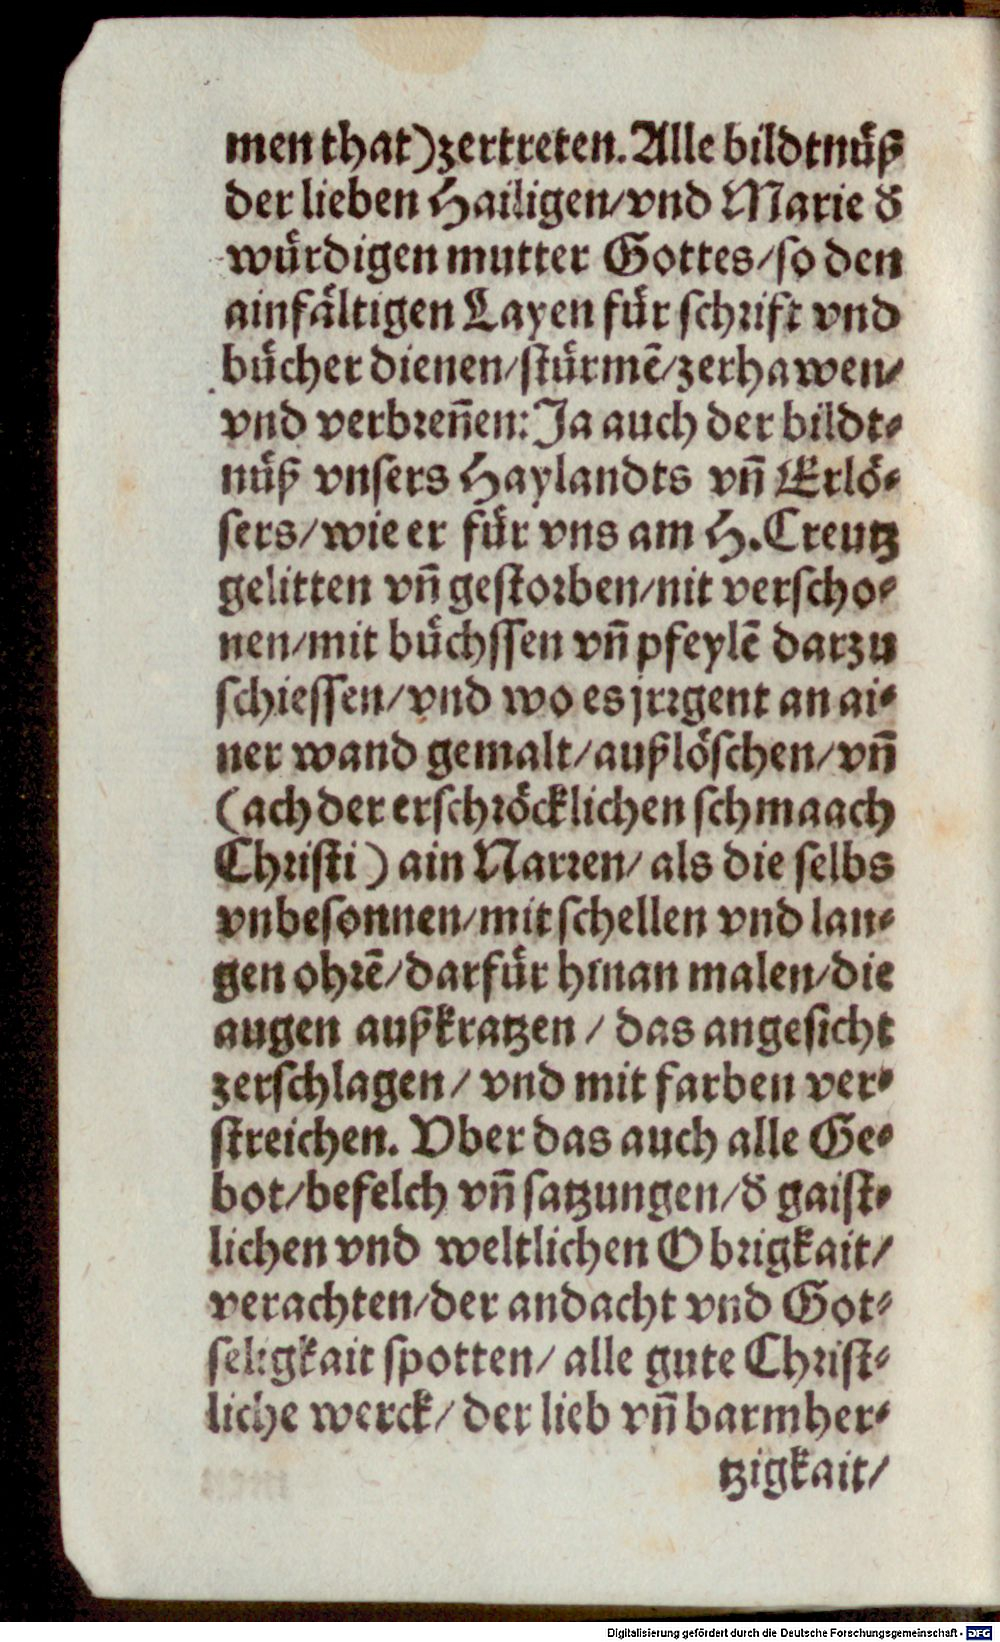 men that) zertreten. Alle bildtnuͤß
der lieben Hailigen/ vnd Marie đ
wuͤrdigen mutter Gottes/ so den
ainfaͤltigen Layen fuͤr schrift vnd
buͤcher dienen/ stuͤrmē/ zerhawen/
vnd verbreñen: Ja auch der bildt⸗
nuͤß vnsers Haylandts vñ Erloͤ⸗
sers/ wie er fuͤr vns am H. Creutz
gelitten vñ gestorben/ nit verscho⸗
nen/ mit buͤchssen vñ pfeylē darzu
schiessen/ vnd wo es jrrgent an ai⸗
ner wand gemalt/ außloͤschen/ vñ
(ach der erschroͤcklichen schmaach
Christi) ain Narren/ als die selbs
vnbesonnen/ mit schellen vnd lan⸗
gen ohrē/ darfuͤr hinan malen/ die
augen außkratzen/ das angesicht
zerschlagen/ vnd mit farben ver⸗
streichen. Vber das auch alle Ge⸗
bot/ befelch vñ satzungen/ đ gaist⸗
lichen vnd weltlichen Obrigkait/
verachten/ der andacht vnd Got⸗
seligkait spotten/ alle gute Christ⸗
liche werck/ der lieb vñ barmher⸗
tzigkait/
Digitalisierung gefördert durch die Deutsche Forschungsgemeinschaft - DFG